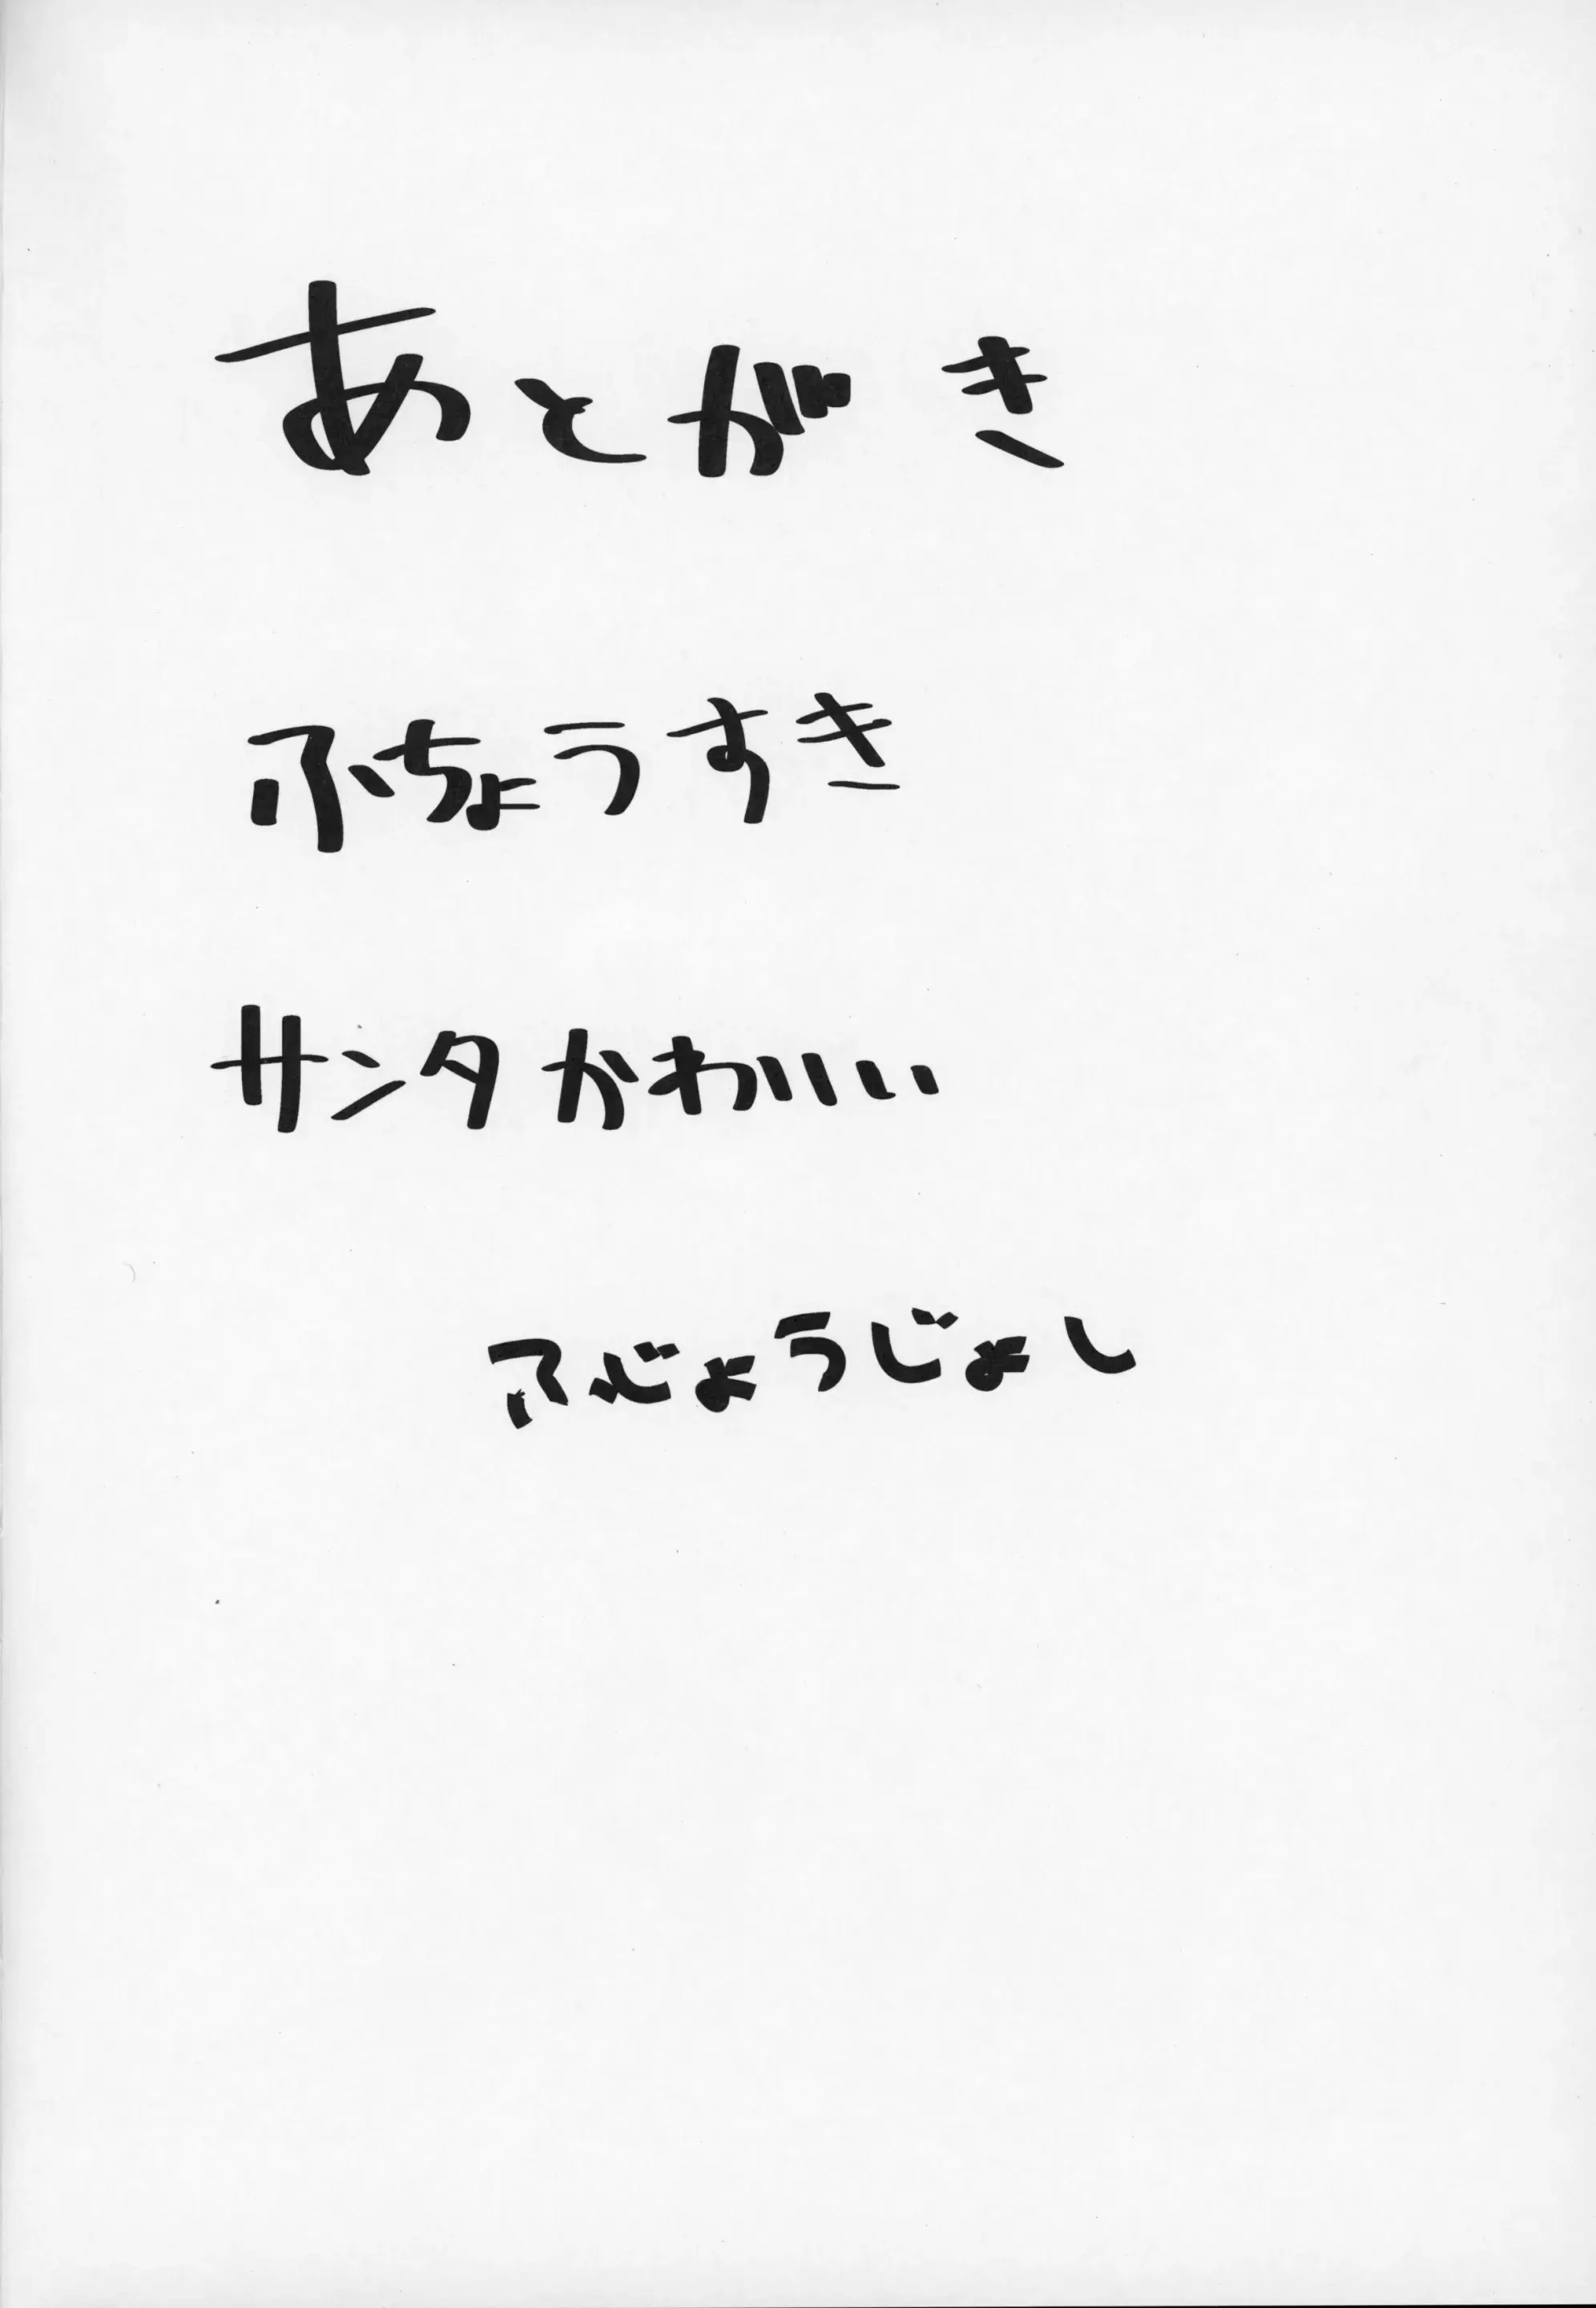 あとがき
ふちょうすき
サンタかわいいい
ふじょうじょし